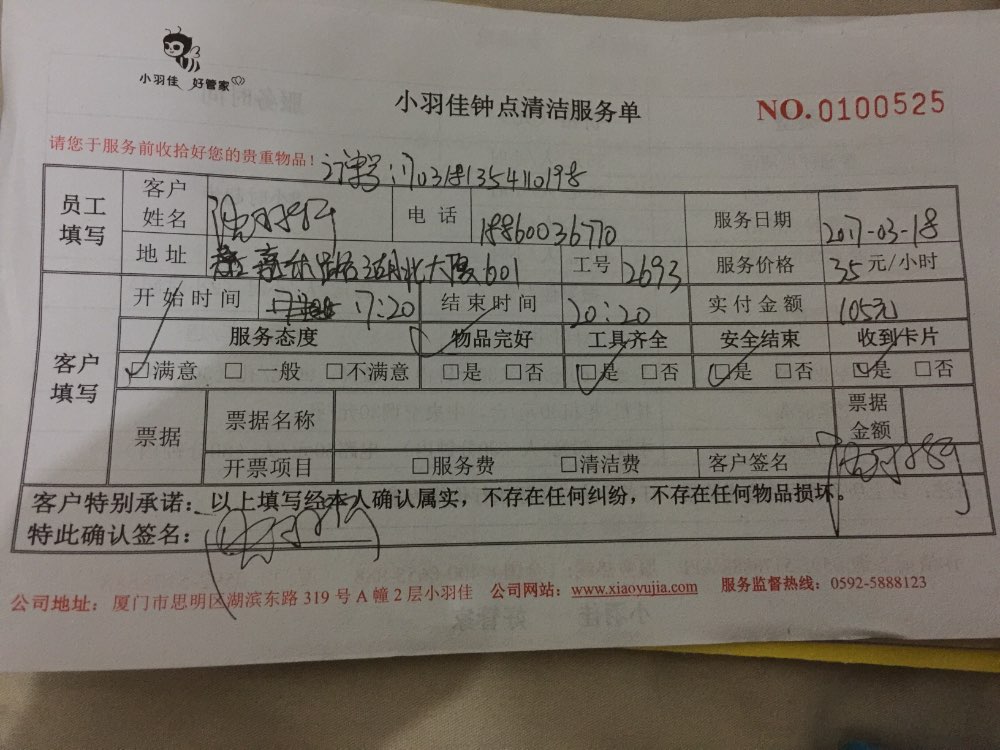 小羽佳 好管家
小羽佳钟点清洁服务单
NO.0100525
请您于服务前收拾好您的贵重物品!
订单号:170318135410198
员工填写
客户姓名
电话 18860036770
服务日期 2017-03-18
地址 大厦601
工号 2693
服务价格 35元/小时
客户填写
开始时间 17:20
结束时间 20:20
实付金额 105元
服务态度 物品完好 工具齐全 安全结束 收到卡片
☑满意 □一般 □不满意 □是 □否 ☑是 □否 ☑是 □否 ☑是 □否
票据
票据名称
票据金额
开票项目 □服务费 □清洁费 客户签名
客户特别承诺:以上填写经本人确认属实,不存在任何纠纷,不存在任何物品损坏。
特此确认签名:
公司地址:厦门市思明区湖滨东路319号A幢2层小羽佳 公司网站:www.xiaoyujia.com 服务监督热线:0592-5888123